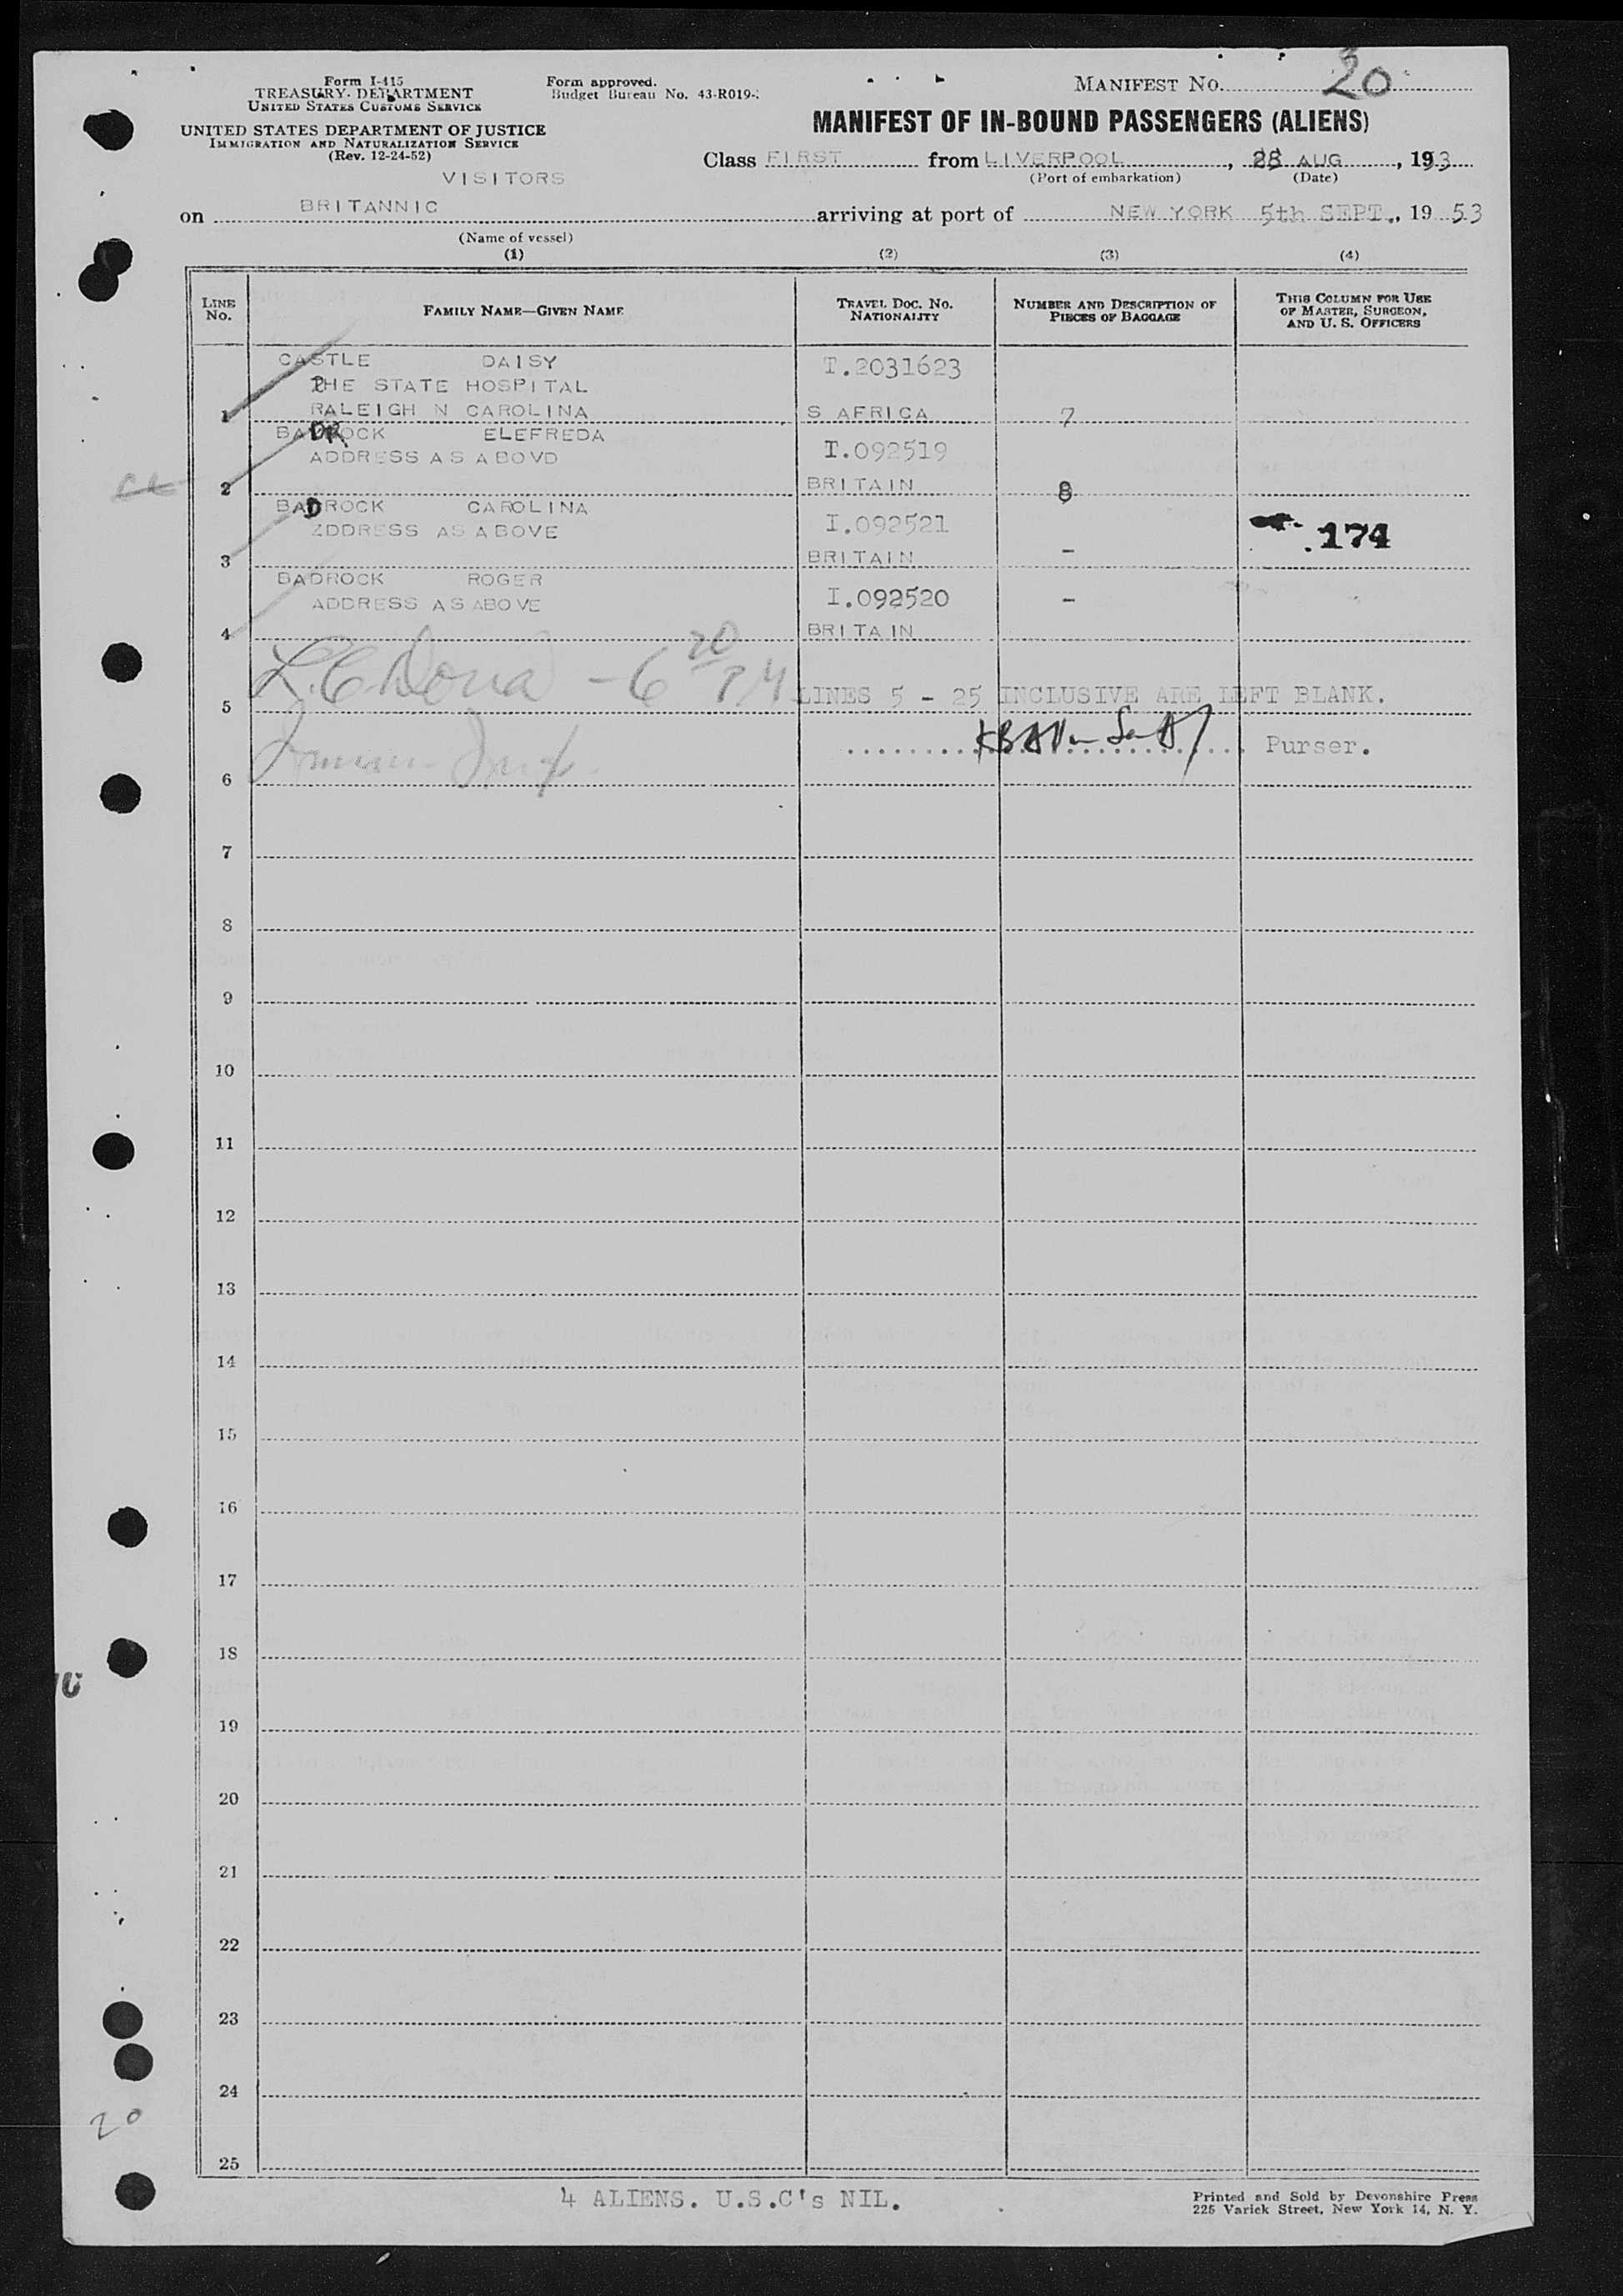 Form I-415
TREASURY DEPARTMENT
UNITED STATES CUSTOMS SERVICE
UNITED STATES DEPARTMENT OF JUSTICE
IMMIGRATION AND NATURALIZATION SERVICE
(Rev. 12-24-52)
Form approved.
Budget Bureau No. 43-R019-
MANIFEST No. 20
MANIFEST OF IN-BOUND PASSENGERS (ALIENS)
Class FIRST from LIVERPOOL, 28 AUG, 1953
(Port of embarkation) (Date)
VISITORS
on BRITANNIC arriving at port of NEW YORK 5th SEPT., 19 53
(Name of vessel)
(1) (2) (3) (4)
LINE No. FAMILY NAME—GIVEN NAME TRAVEL DOC. NO. NATIONALITY NUMBER AND DESCRIPTION OF PIECES OF BAGGAGE THIS COLUMN FOR USE OF MASTER, SURGEON, AND U. S. OFFICERS
CASTLE DAISY T.2031623
THE STATE HOSPITAL
1 RALEIGH N CAROLINA S AFRICA 7
BADROCK ELEFREDA
ADDRESS AS ABOVD T.092519
2 BRITAIN 8
BADROCK CAROLINA
ADDRESS AS ABOVE I.092521 174
3 BRITAIN -
BADROCK ROGER
ADDRESS AS ABOVE I.092520 -
4 BRITAIN
- 6 20 PM
5 LINES 5 - 25 INCLUSIVE ARE LEFT BLANK.
Purser.
6
7
8
9
10
11
12
13
14
15
16
17
18
19
20
21
22
23
24
20
25
4 ALIENS. U.S.C's NIL.
Printed and Sold by Devonshire Press
225 Varick Street, New York 14, N. Y.